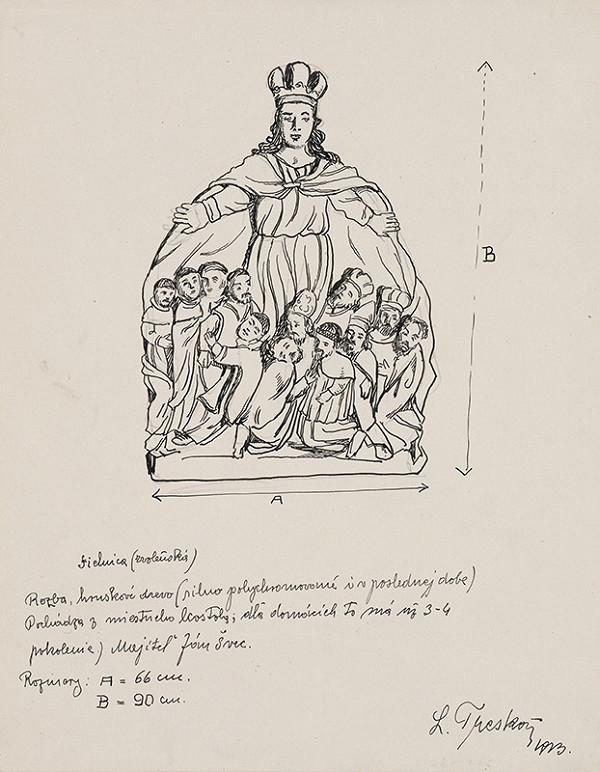 B
A
Dielnica (zvolenská)
Rezba, hruškové drevo (silno polychromované i v poslednej dobe)
Pochádza z miestneho kostola; dľa domácich to má už 3-4
pokolenie) Majiteľ Ján Švec.
Rozmery: A = 66 cm.
B = 90 cm.
L. Treskoň
1923.